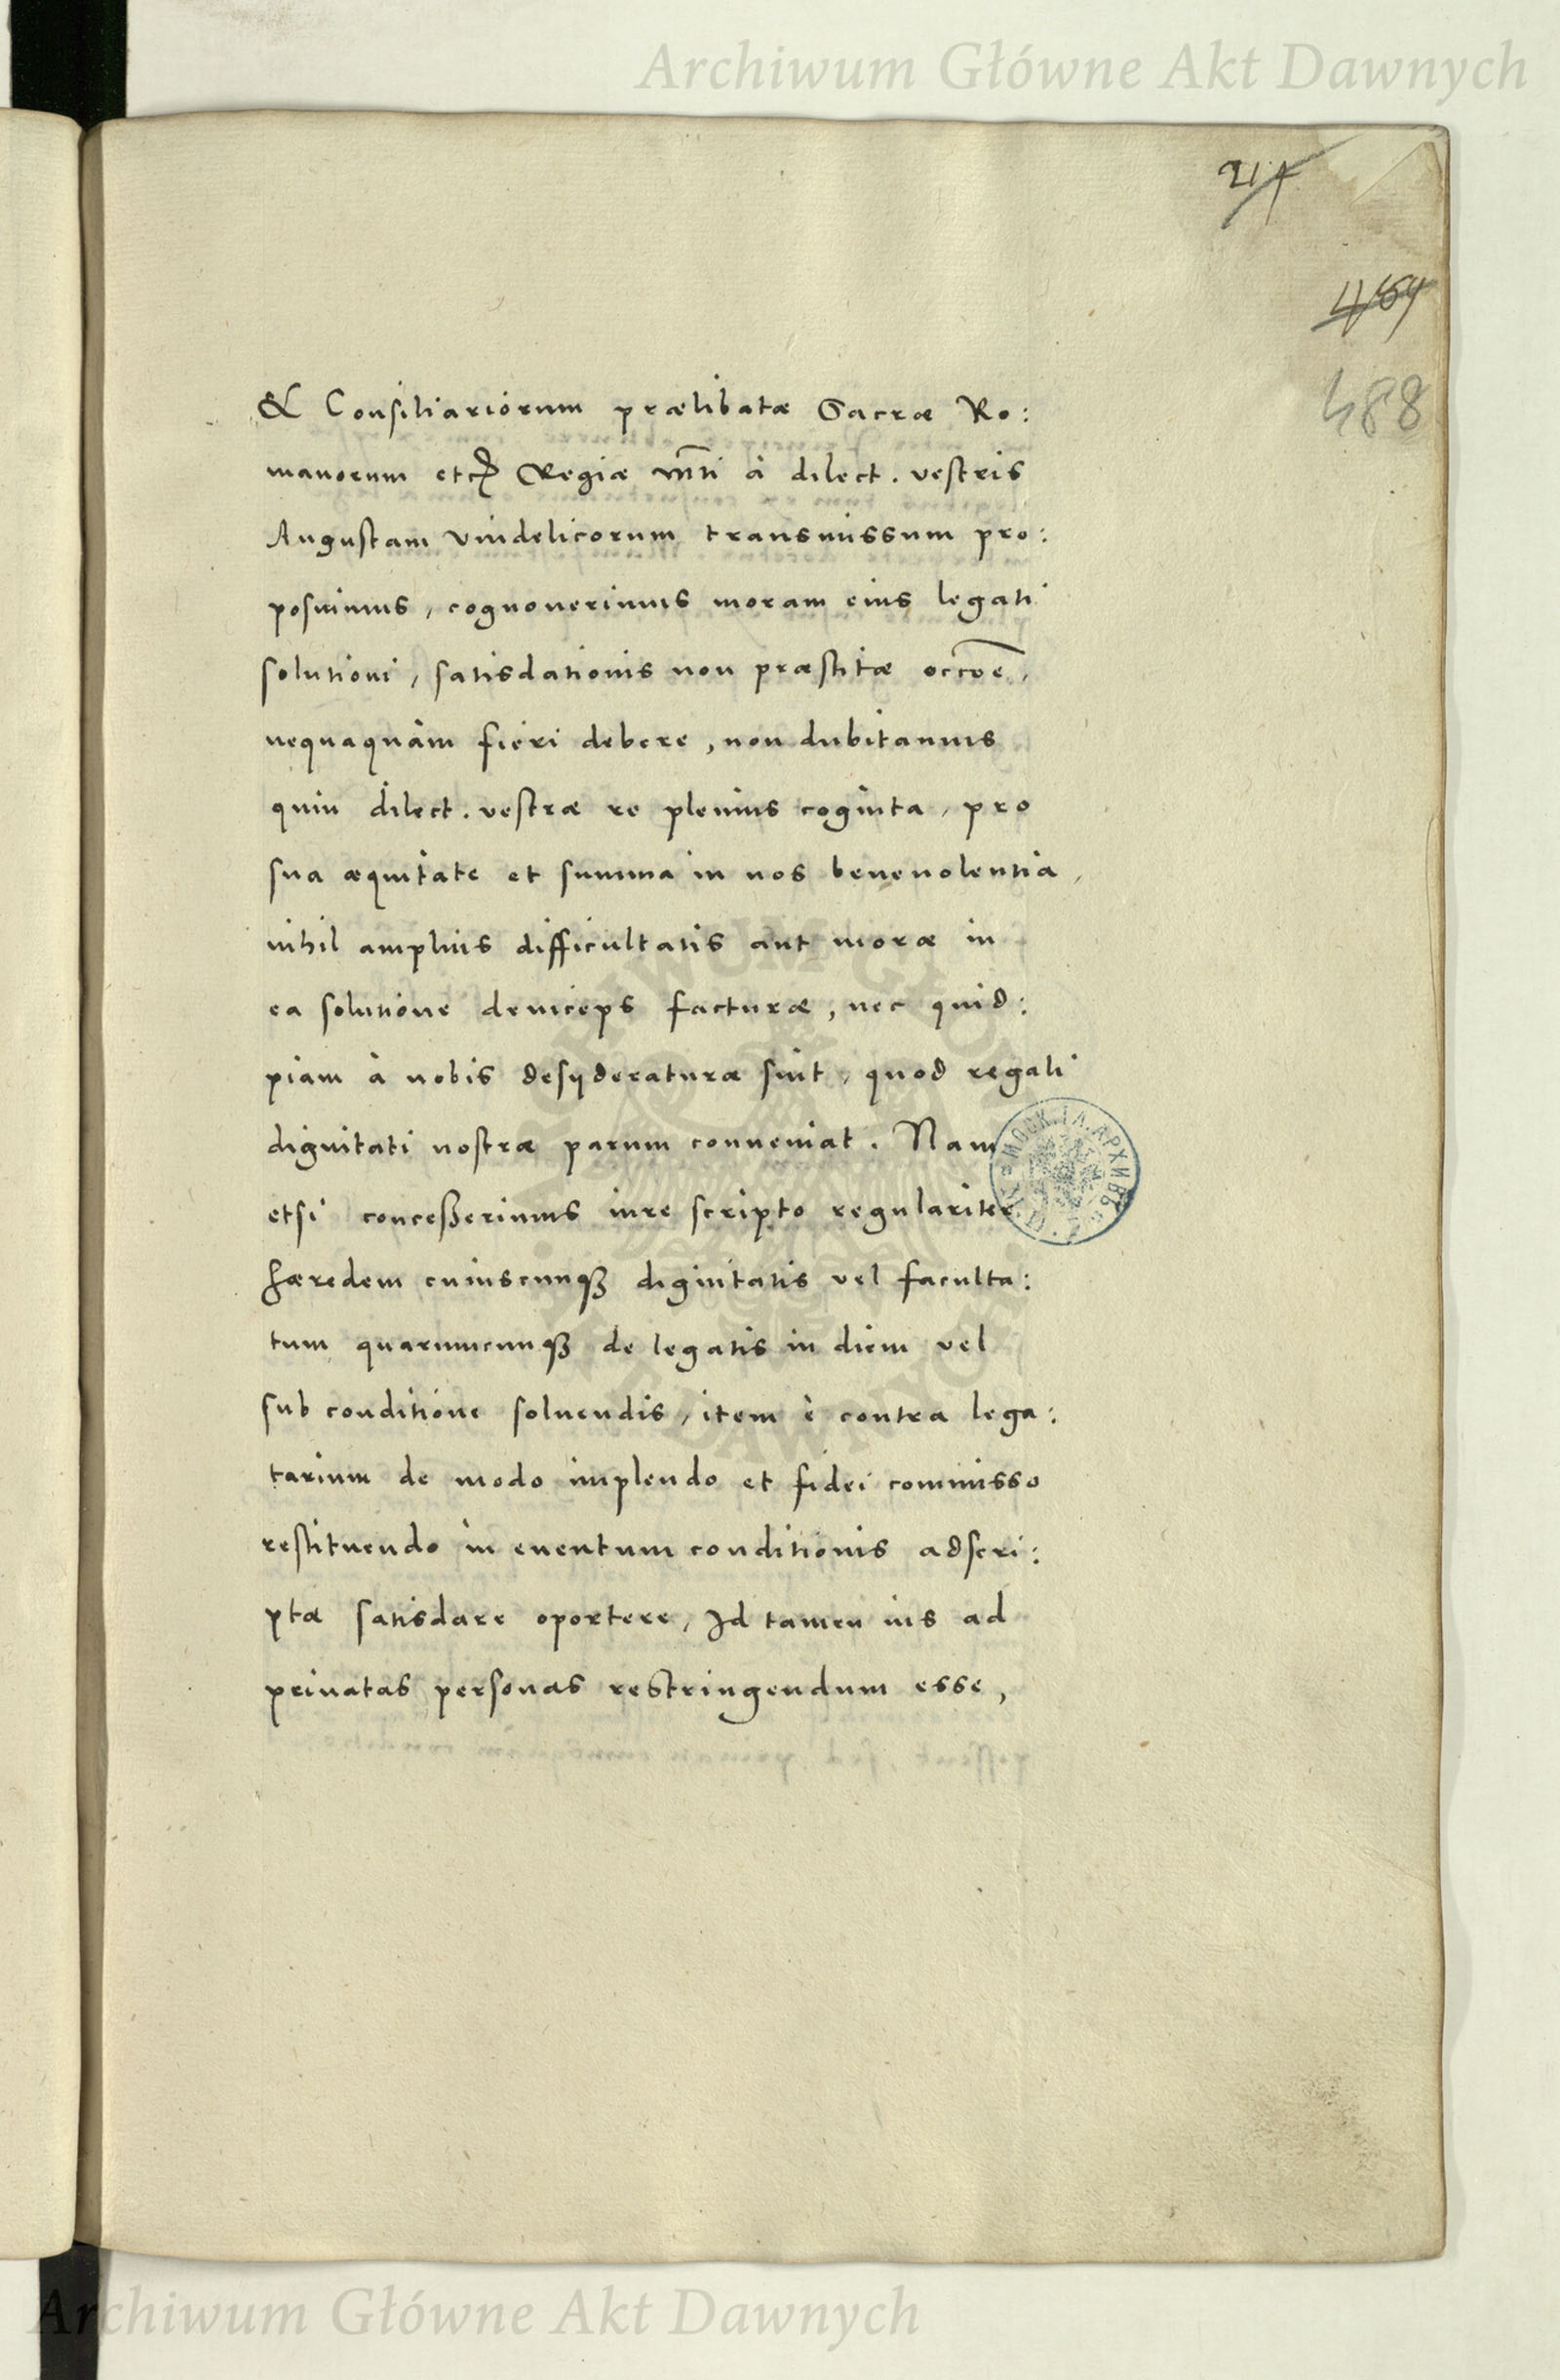 Archiwum Główne Akt Dawnych
214
464
488
& Consiliariorum prælibatæ Sacræ Ro:
manorum etc Regiæ Mti à dilect. vestris
Augustam Vindelicorum transmissum pro:
posuimus, cognouerimus moram eius legati
solutioni, satisdationis non præstitæ occoe,
nequaquàm fieri debere, non dubitamus
quin dilect. vestræ re plenius cognita, pro
sua æquitate et summa in nos beneuolentia,
nihil amplius difficultatis aut moræ in
ea solutione deinceps facturæ, nec quid:
piam à nobis desyderaturæ sint, quod regali
dignitati nostræ parum conueniat. Nam
etsi conceßerimus iure scripto regulariter
hæredem cuiuscunqß dignitatis vel faculta:
tum quarumcunqß de legatis in diem vel
sub conditione soluendis, item è contra lega:
tarium de modo implendo et fidei commisso
restituendo in euentum conditionis adscri:
ptæ satisdare oportere, Id tamen ius ad
priuatas personas restringendum esse,
Archiwum Główne Akt Dawnych